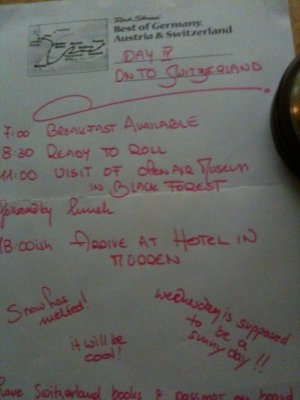 Rick Steves'
Best of Germany,
Austria & Switzerland
DAY IV
ONTO SWITZERLAND
7:00 BREAKFAST AVAILABLE
8:30 READY TO ROLL
11:00 VISIT OF OPEN AIR MUSEUM
IN BLACK FOREST
followed by lunch
18:00ish ARRIVE AT HOTEL IN
MÜRREN
Snow has
melted!
Wednesday is supposed
to be a
sunny day!!
it will be
cool!
have Switzerland books & passport on board